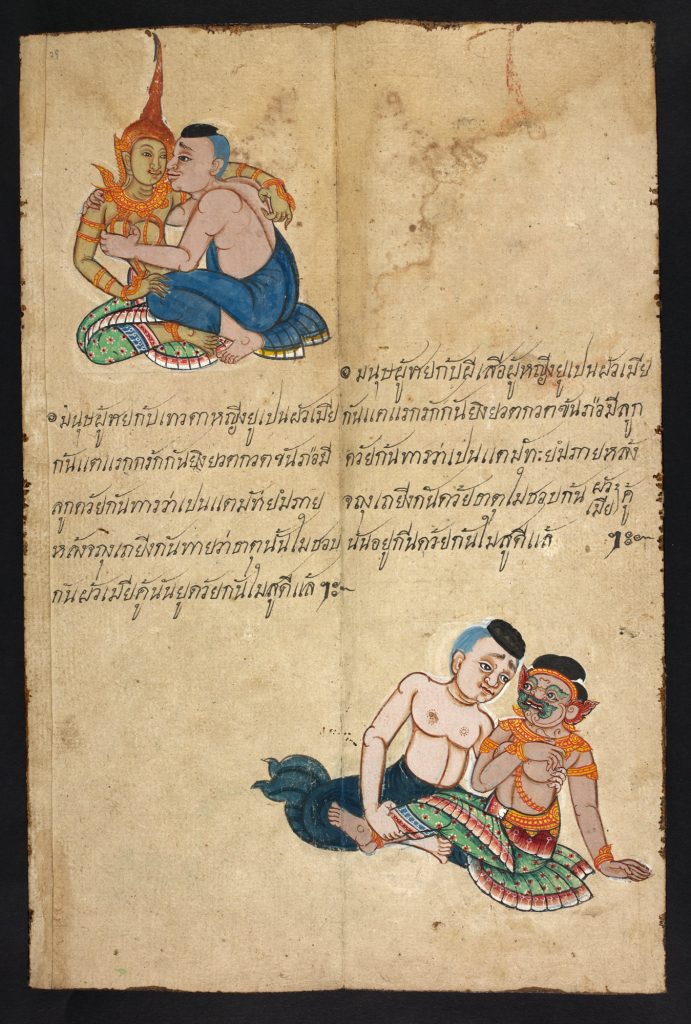 ๏ มนุษผู้ชายกับเทวดาหญิงยูเปนผัวเมีย
กันแตแรกรักกันยิงยวดกวดขันภ่อมี
ลูกด้วยกันทารว่าเปนแต่มัทยมภาย
หลังจถุงเถยีงกันทายว่าธาตุนั้นไมชอบ
กันผัวเมียคู่นันยูดวัยกันไมสูดีแล้
๏ มนุษผู้ชายกับผีเสือผู้หญีงยูเปนผัวเมีย
กันแตแรกรักกันยิงยวดกวดขันภ่อมีลูก
ด้วยกันทารว่าเปนแตมัทะยมภายหลัง
จถุงเถยีงกันด้วัยธาตุไมชอบกัน ผัวเมีย คู่
นันอยู่กีนด้วยกันไมสูดีแล้